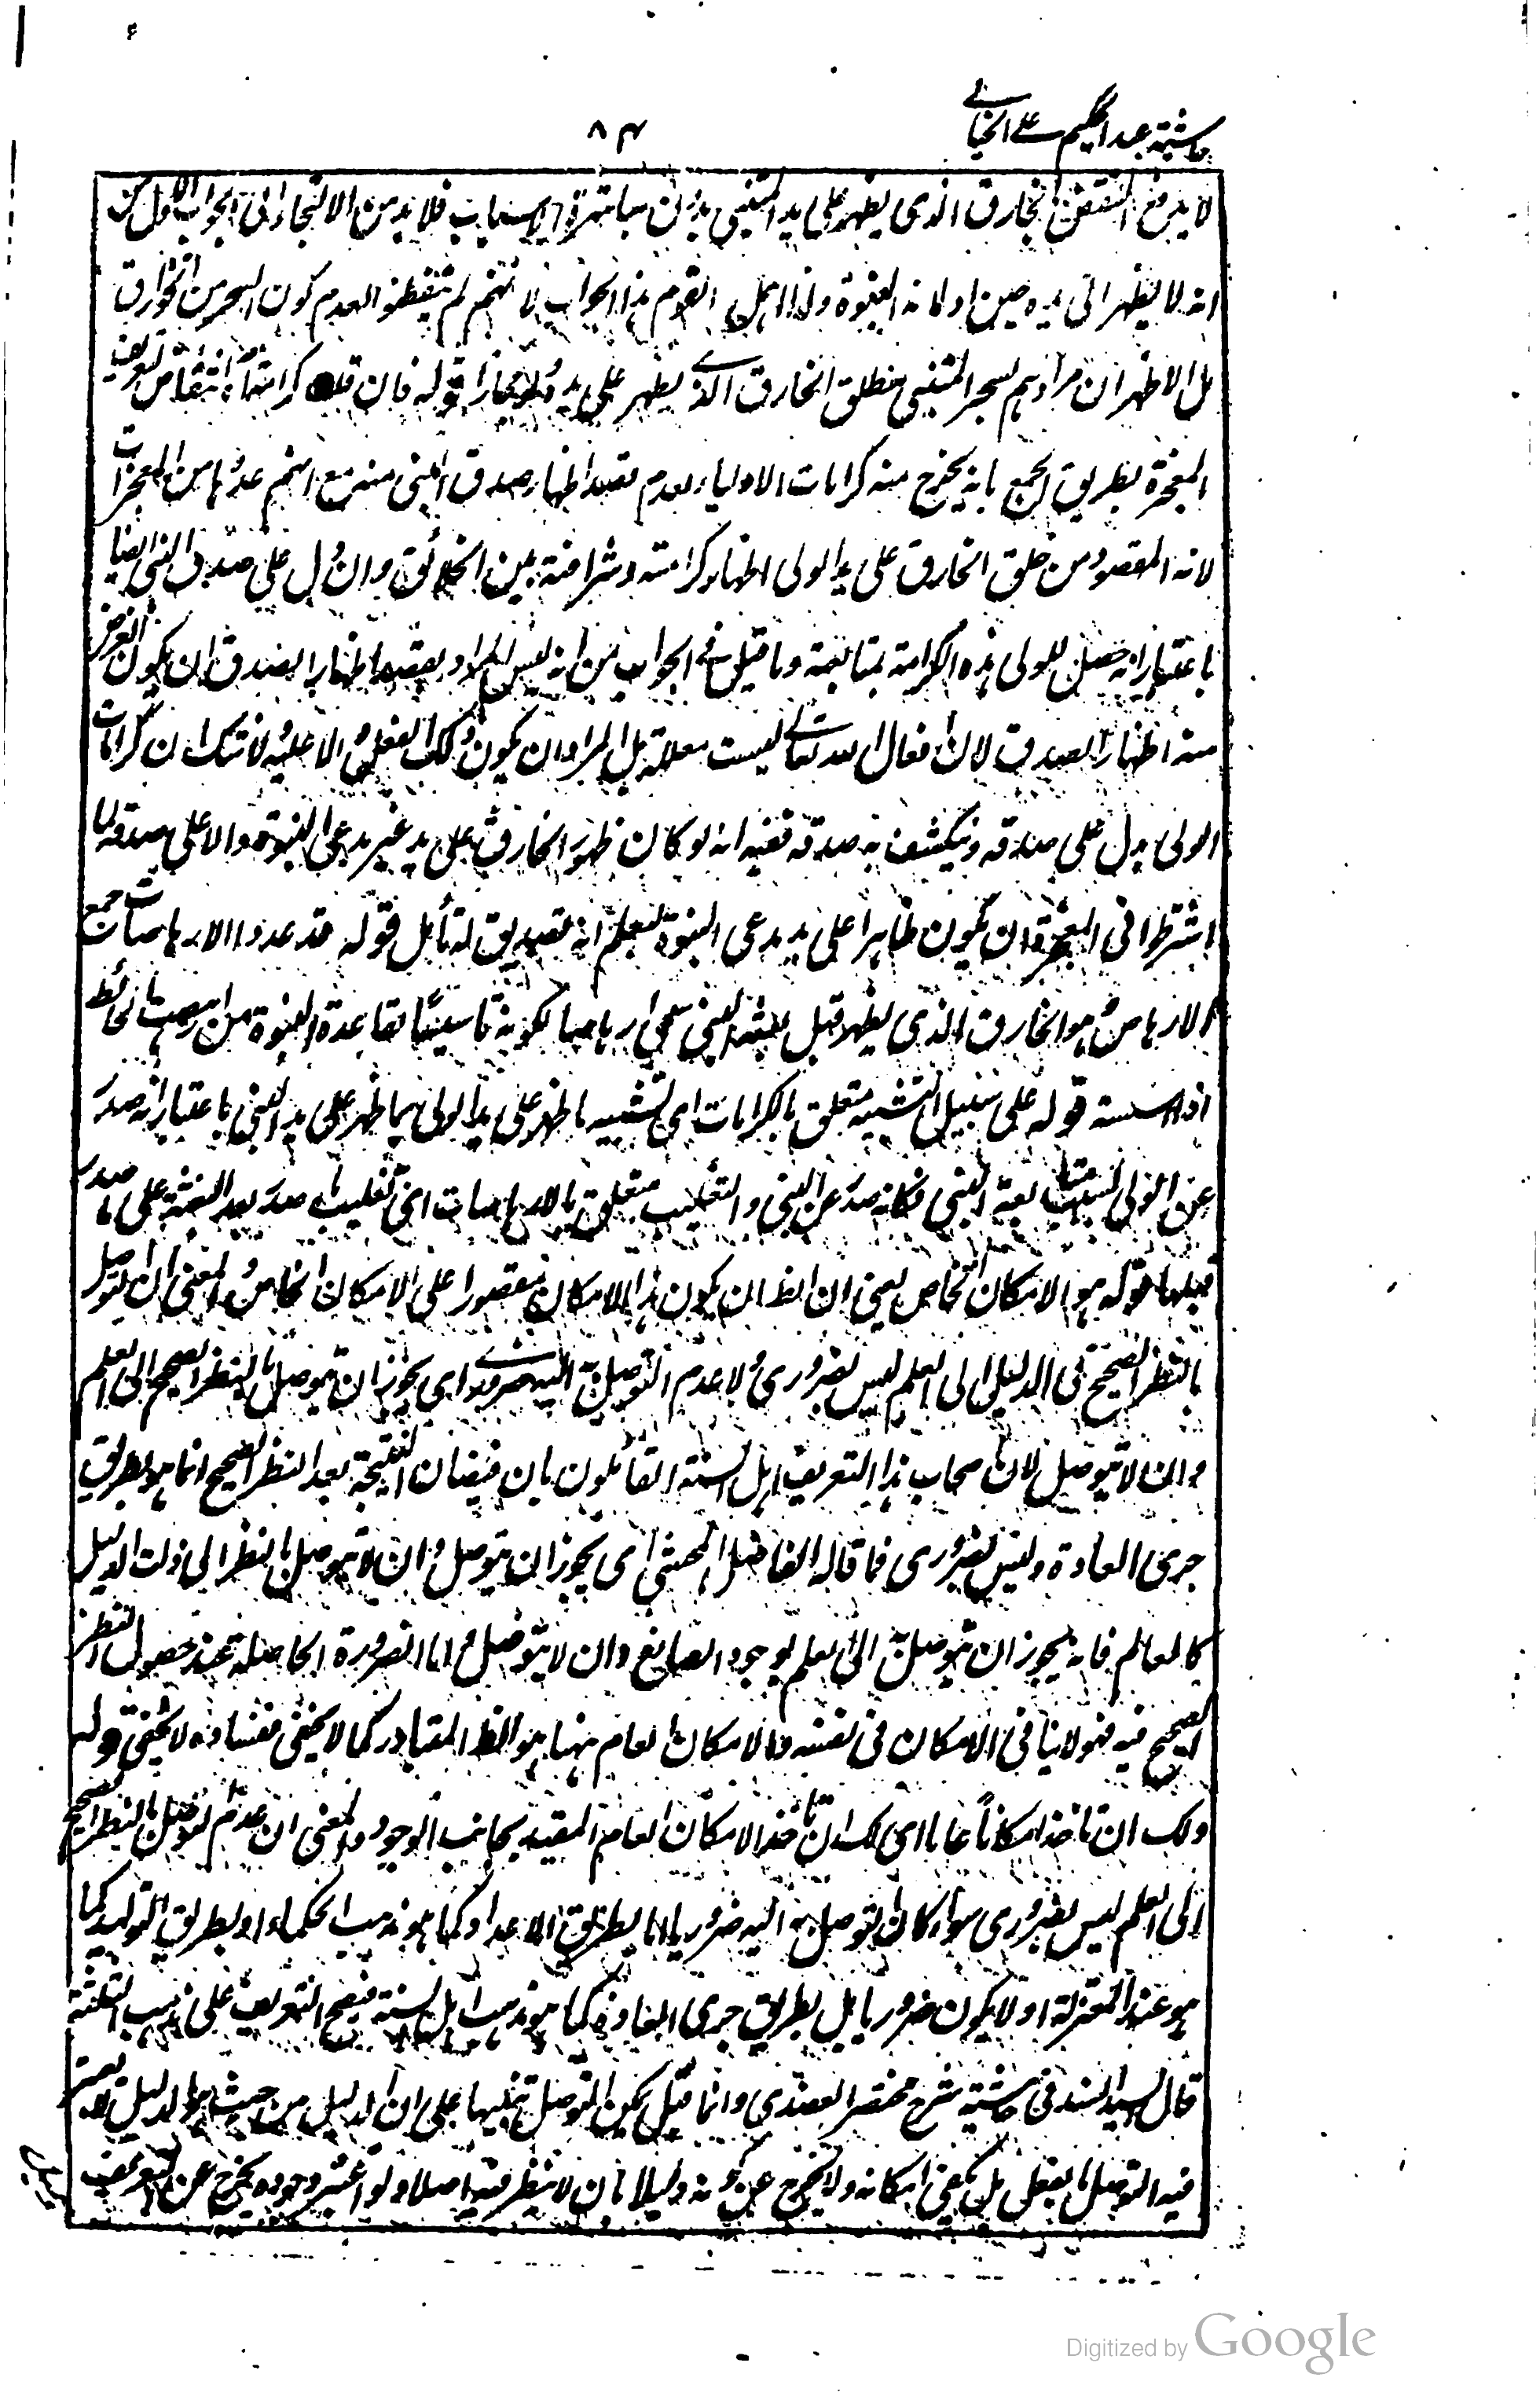 حاشية عبد الحكيم على الخيالي
٨٤
لا يدفع النقض الخارق الذي يظهر على يد المتنبي بدون مباشرة الاسباب فلا بد من الالتجاء الى الجواب الاول من
انه لا يظهر الى يده حين ادعائه النبوة ولذا اهمل القوم هذا الجواب لا نهم لم يتفطنوا لعدم كون السحر من الخوارق
بل الاظهر ان مرادهم بسحر المتنبي مطلق الخارق الذي يظهر على يده ولو مجازا قوله فان قلت كرامة انتقاض تعريف
المعجزة بطريق الجمع بانه يخرج منه كرامات الاولياء لعدم قصد اظهار صدق النبي منه مع انهم عدوها من المعجزات
لانه المقصود من خلق الخارق على يد الولى اظهار كرامته وشرافته بين الخلائق وان دل على صدق النبي ايضا
باعتبار انه حصل للولى هذه الكرامة بمتابعته وما قيل في الجواب من انه ليس المراد بقصد اظهار الصدق ان يكون الغرض
منه اظهار الصدق لان افعال الله تعالى ليست معللة بل المراد ان يكون ذلك الفعل دالا عليه ولا شك ان كرامات
الولى يدل على صدقه وينكشف به صدقه ففيه انه لو كان ظهور الخارق على يد غير مدعى النبوة دالا على صدقه لما
اشترطوا فى المعجزة ان يكون ظاهرا على يد مدعى النبوة ليعلم انه تصديق له تأمل قوله قد عدوا الارهاصات جمع
الارهاص هو الخارق الذى يظهر قبل بعثة النبى سمى ارهاصا لكونه تاسيسا لقاعدة النبوة من ارهصت الحائط
اذا اسسته قوله على سبيل التشبيه متعلق بالكرامات اى تشبيه ما ظهر على يد الولى بما ظهر على يد النبى باعتبار انه صدر
عن الولى بسبب متابعة النبى فكانه صدر عن النبى والتغليب متعلق بالارهاصات اى تغليب ما صدر بعد البعثة على ما صدر
قبلها قوله هو الامكان الخاص يعنى ان الظ ان يكون هذا الامكان مقصورا على الامكان الخاص والمعنى ان التوصل
بالنظر الصحيح فى الدليل الى العلم ليس بضرورى ولا عدم التوصل به اليه ضرورى اى يجوز ان يتوصل بالنظر الصحيح الى العلم
وان لا يتوصل لان اصحاب هذا التعريف اهل السنة القائلون بان فيضان النتيجة بعد النظر الصحيح انما هو بطريق
جرى العادة وليس بضرورى فما قاله الفاضل المحشى اى يجوز ان يتوصل وان لا يتوصل بالنظر الى ذات الدليل
كالعالم فانه يجوز ان يتوصل به الى العلم بوجود الصانع وان لا يتوصل واما الضرورة الحاصلة عند حصول النظر
الصحيح فيه فهو لا ينافى الامكان فى نفسه والامكان العام ههنا هو الظ المتبادر كما لا يخفى ففساده لا يخفى قوله
ولك ان تاخذ امكانا عاما اى لك ان تأخذ الامكان العام المقيد بجانب الوجود والمعنى ان عدم التوصل بالنظر الصحيح
الى العلم ليس بضرورى سواء كان التوصل به اليه ضروريا اما بطريق الاعداد كما هو مذهب الحكماء او بطريق التوليد كما
هو عند المعتزلة او لا يكون ضروريا بل بطريق جرى العادة كما هو مذهب اهل السنة فيصح التعريف على مذاهب الثلثة
قال السيد السند فى حاشية شرح مختصر العضدى وانما قيل يمكن التوصل تنبيها على ان الدليل من حيث هو دليل لا يعتبر
فيه التوصل بالفعل بل يكفى امكانه ولا يخرج عن كونه دليلا بان لا ينظر فيه اصلا ولو اعتبر وجوده يخرج عن التعريف
Digitized by Google